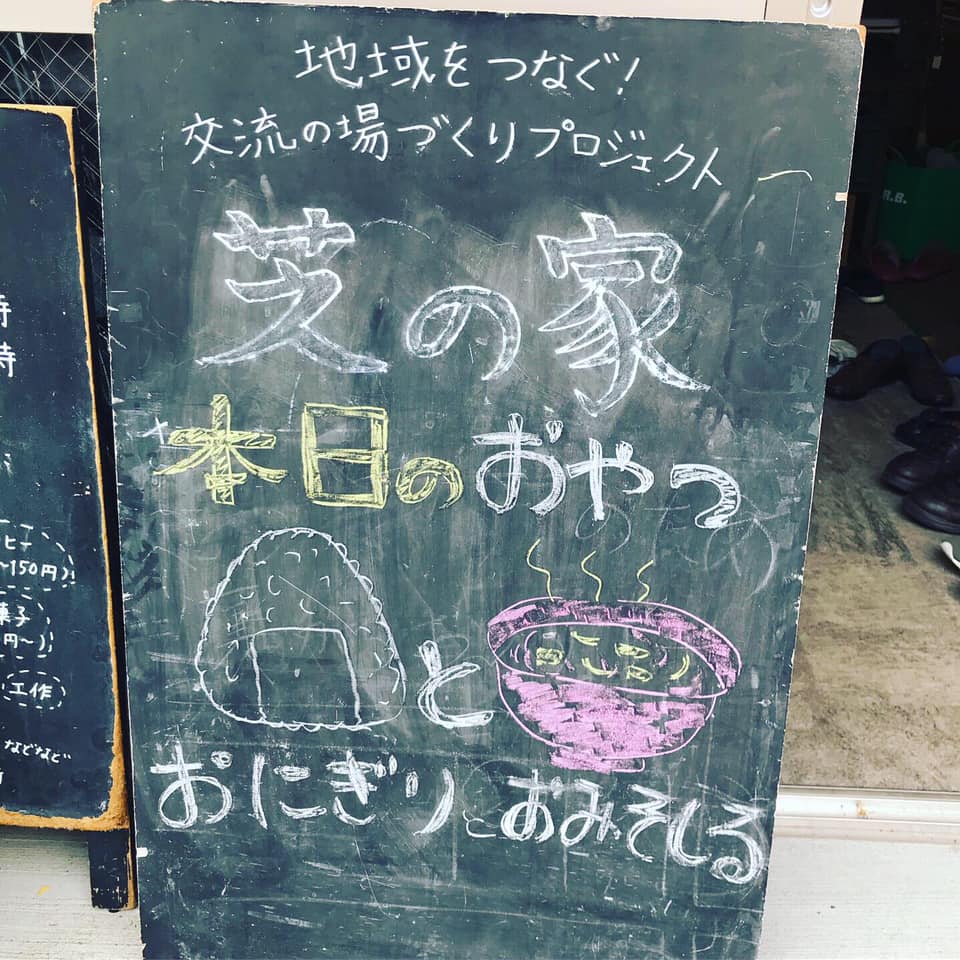 地域をつなぐ!
交流の場づくりプロジェクト
芝の家
本日のおやつ
と
おにぎりとおみそしる
時
時
~150円)
菓子
円~)
工作
などなど
R.B.